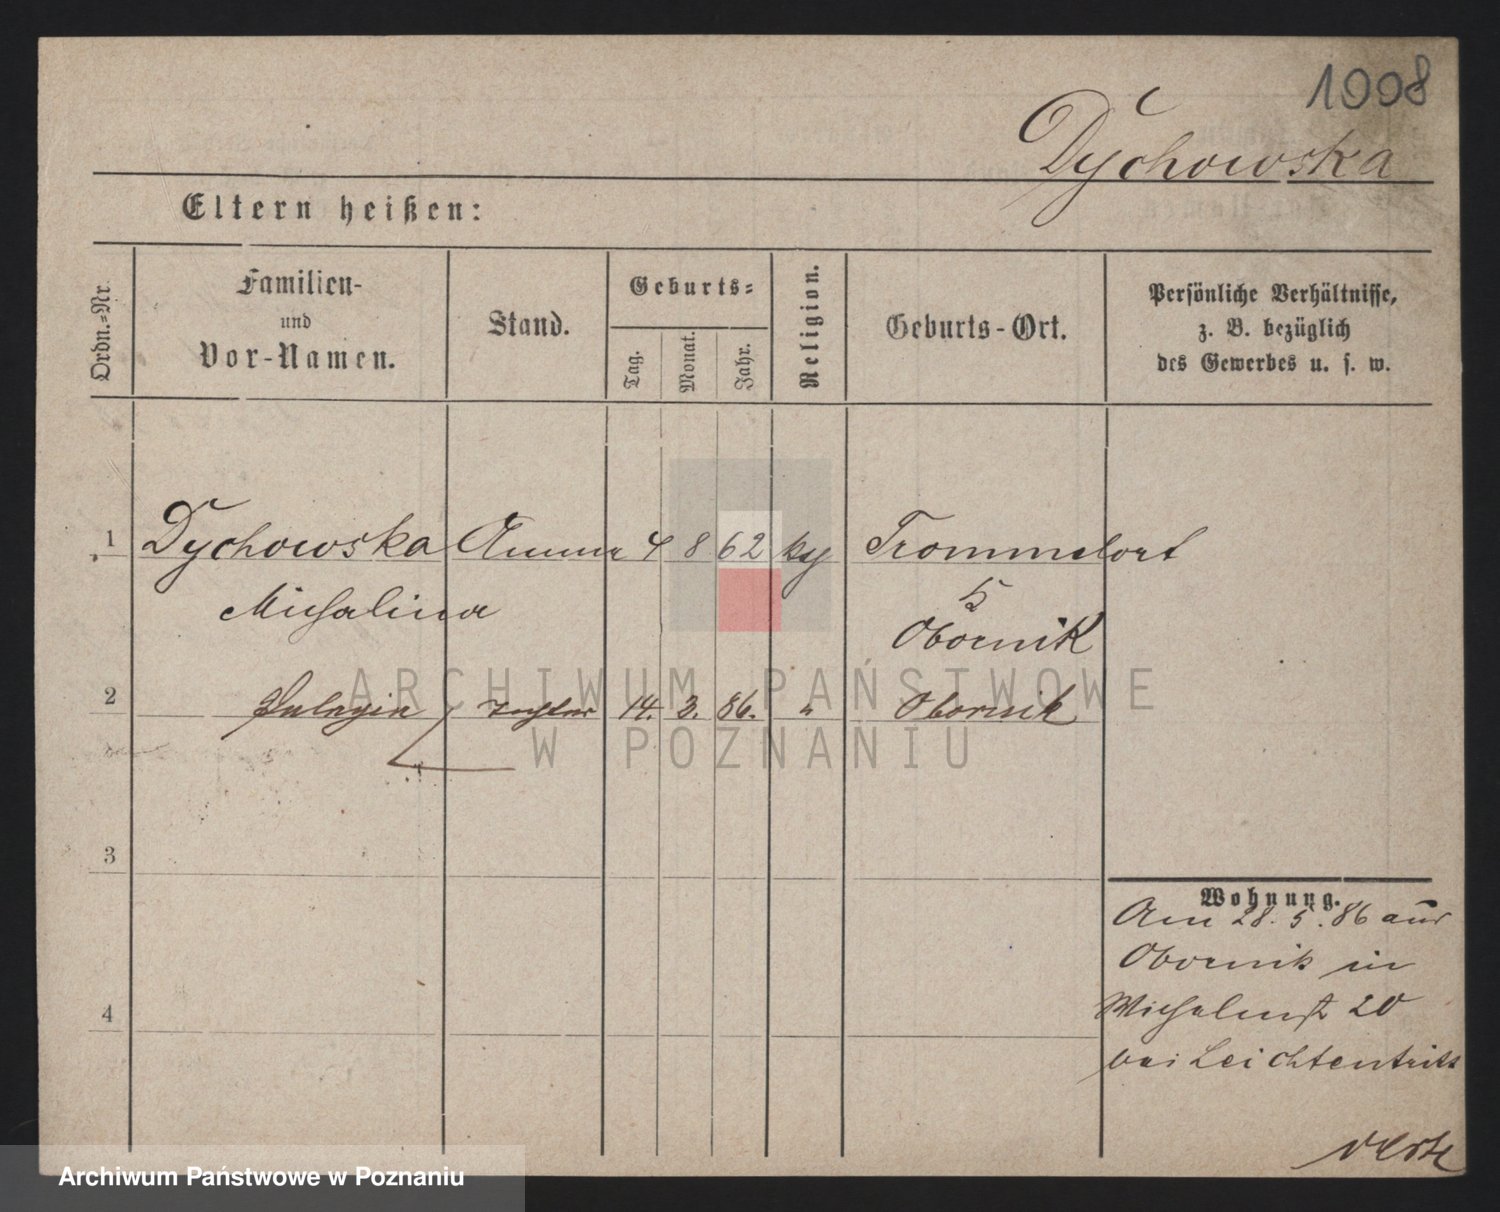 1008
Dychowska
Eltern heißen:
Ordn.-Nr.
Familien-
und
Vor-Namen.
Stand.
Geburts-
Tag.
Monat.
Jahr.
Religion.
Geburts-Ort.
Persönliche Verhältnisse,
z. B. bezüglich
des Gewerbes u. s. w.
1 Dychowska Amme 4 8 62 Trommelort
Michalina
Obornik
2 Pelagia Tochter 14. 3. 86. " Obornik
3
Wohnung.
Am 28. 5. 86 aus
Obornik in
Wilhelmst 20
bei Leichtentritt
4
ARCHIWUM PAŃSTWOWE
W POZNANIU
Archiwum Państwowe w Poznaniu